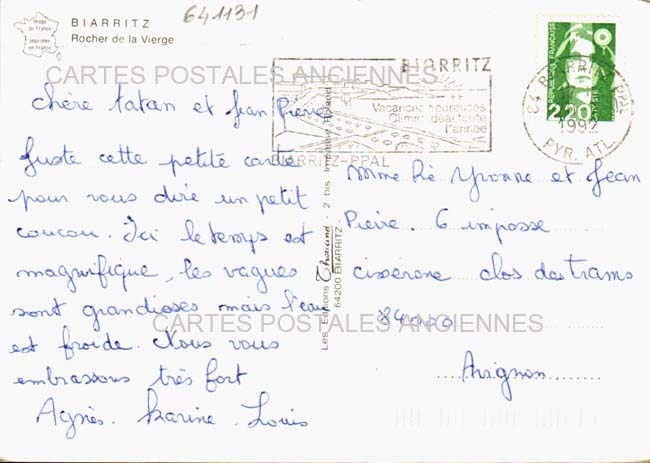 641131
Image
de France
Imprimée
en France
BIARRITZ
Rocher de la Vierge
CARTES POSTALES ANCIENNES
BIARRITZ
Vacances heureuses
Climat idéal toute
l'année
BIARRITZ-PPAL
REPUBLIQUE FRANÇAISE
2,20
LA POSTE
64 BIARRITZ PPAL
1992
PYR. ATL.
Chère tatan et Jean Pierre
Juste cette petite carte
pour vous dire un petit
coucou. Ici le temps est
magnifique, les vagues
sont grandioses mais l'eau
est froide. Nous vous
embrassons très fort
Agnès. Karine. Louis
Les Editions Thouand - 2 bis Impasse Roland
64200 BIARRITZ
Mme Ré Yvonne et Jean
Pierre. 6 imposse
clos des trams
84000
Avignon
CARTES POSTALES ANCIENNES